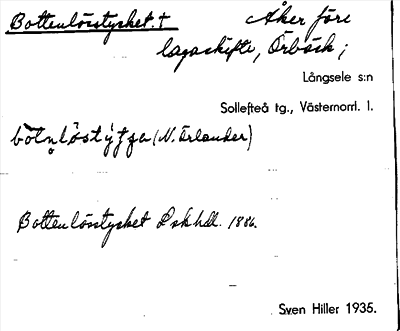 Bottenlösstycket. † Åker före
lagaskifte, Örbäck;
Långsele s:n
Sollefteå tg., Västernorrl. l.
(N. Erlander)
Bottenlösstycket Lskhdl. 1886.
Sven Hiller 1935.